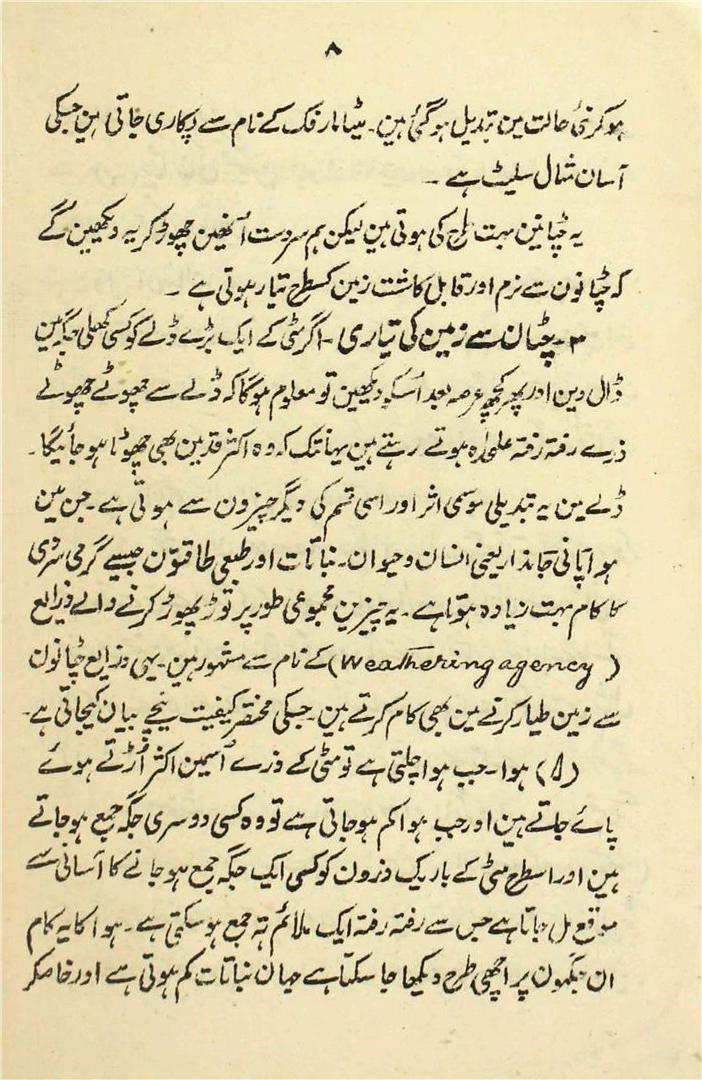 ۸
ہوکر نئی حالت مین تبدیل ہوگئی ہین۔ میٹامارفک کے نام سے پکاری جاتی ہین جسکی
آسان مثال سلیٹ ہے ۔
یہ چٹانین بہت طرح کی ہوتی ہین لیکن ہم سردست اُنھین چھوڑکر یہ دیکھین گے
کہ چٹانون سے نرم اور قابل کاشت زمین کسطرح تیار ہوتی ہے ۔
۳۔ چٹان سے زمین کی تیاری ۔ اگر مٹی کے ایک بڑے ڈلے کو کسی کھلی جگہ مین
ڈال دین اور پھر کچھ عرصہ بعد اُسکو دیکھین تو معلوم ہوگا کہ ڈلے سے چھوٹے چھوٹے
ذرے رفتہ رفتہ علحدہ ہوتے رہتے ہین یہانتک کہ وہ اکثر قد مین بھی چھوٹا ہوجائیگا۔
ڈلے مین یہ تبدیلی موسمی اثر اور اسی قسم کی دیگر چیزون سے ہوتی ہے ۔ جن مین
ہوا پانی جاندار یعنی انسان و حیوان۔ نباتات اور طبعی طاقتون جیسے گرمی سردی
کا کام بہت زیادہ ہوتا ہے۔ یہ چیزین مجموعی طور پر توڑ پھوڑ کرنے والے ذرایع
(Weathering agency) کے نام سے مشہور ہین۔ یہی ذرایع چٹانون
سے زمین طیار کرنے مین بھی کام کرتے ہین۔ جسکی مختصر کیفیت نیچے بیان کیجاتی ہے۔
(۸) ہوا۔ جب ہوا چلتی ہے تو مٹی کے ذرے اُسمین اکثر اُڑتے ہوئے
پائے جاتے ہین اور جب ہوا کم ہوجاتی ہے تو وہ کسی دوسری جگہ جمع ہوجاتے
ہین اور اسطرح مٹی کے باریک ذرون کو کسی ایک جگہ جمع ہوجانے کا آسانی سے
موقع مل جاتا ہے جس سے رفتہ رفتہ ایک ملائم تہ جمع ہوسکتی ہے۔ ہوا کا یہ کام
ان جگہون پر اچھی طرح دیکھا جا سکتا ہے جہان نباتات کم ہوتی ہے اور خاصکر